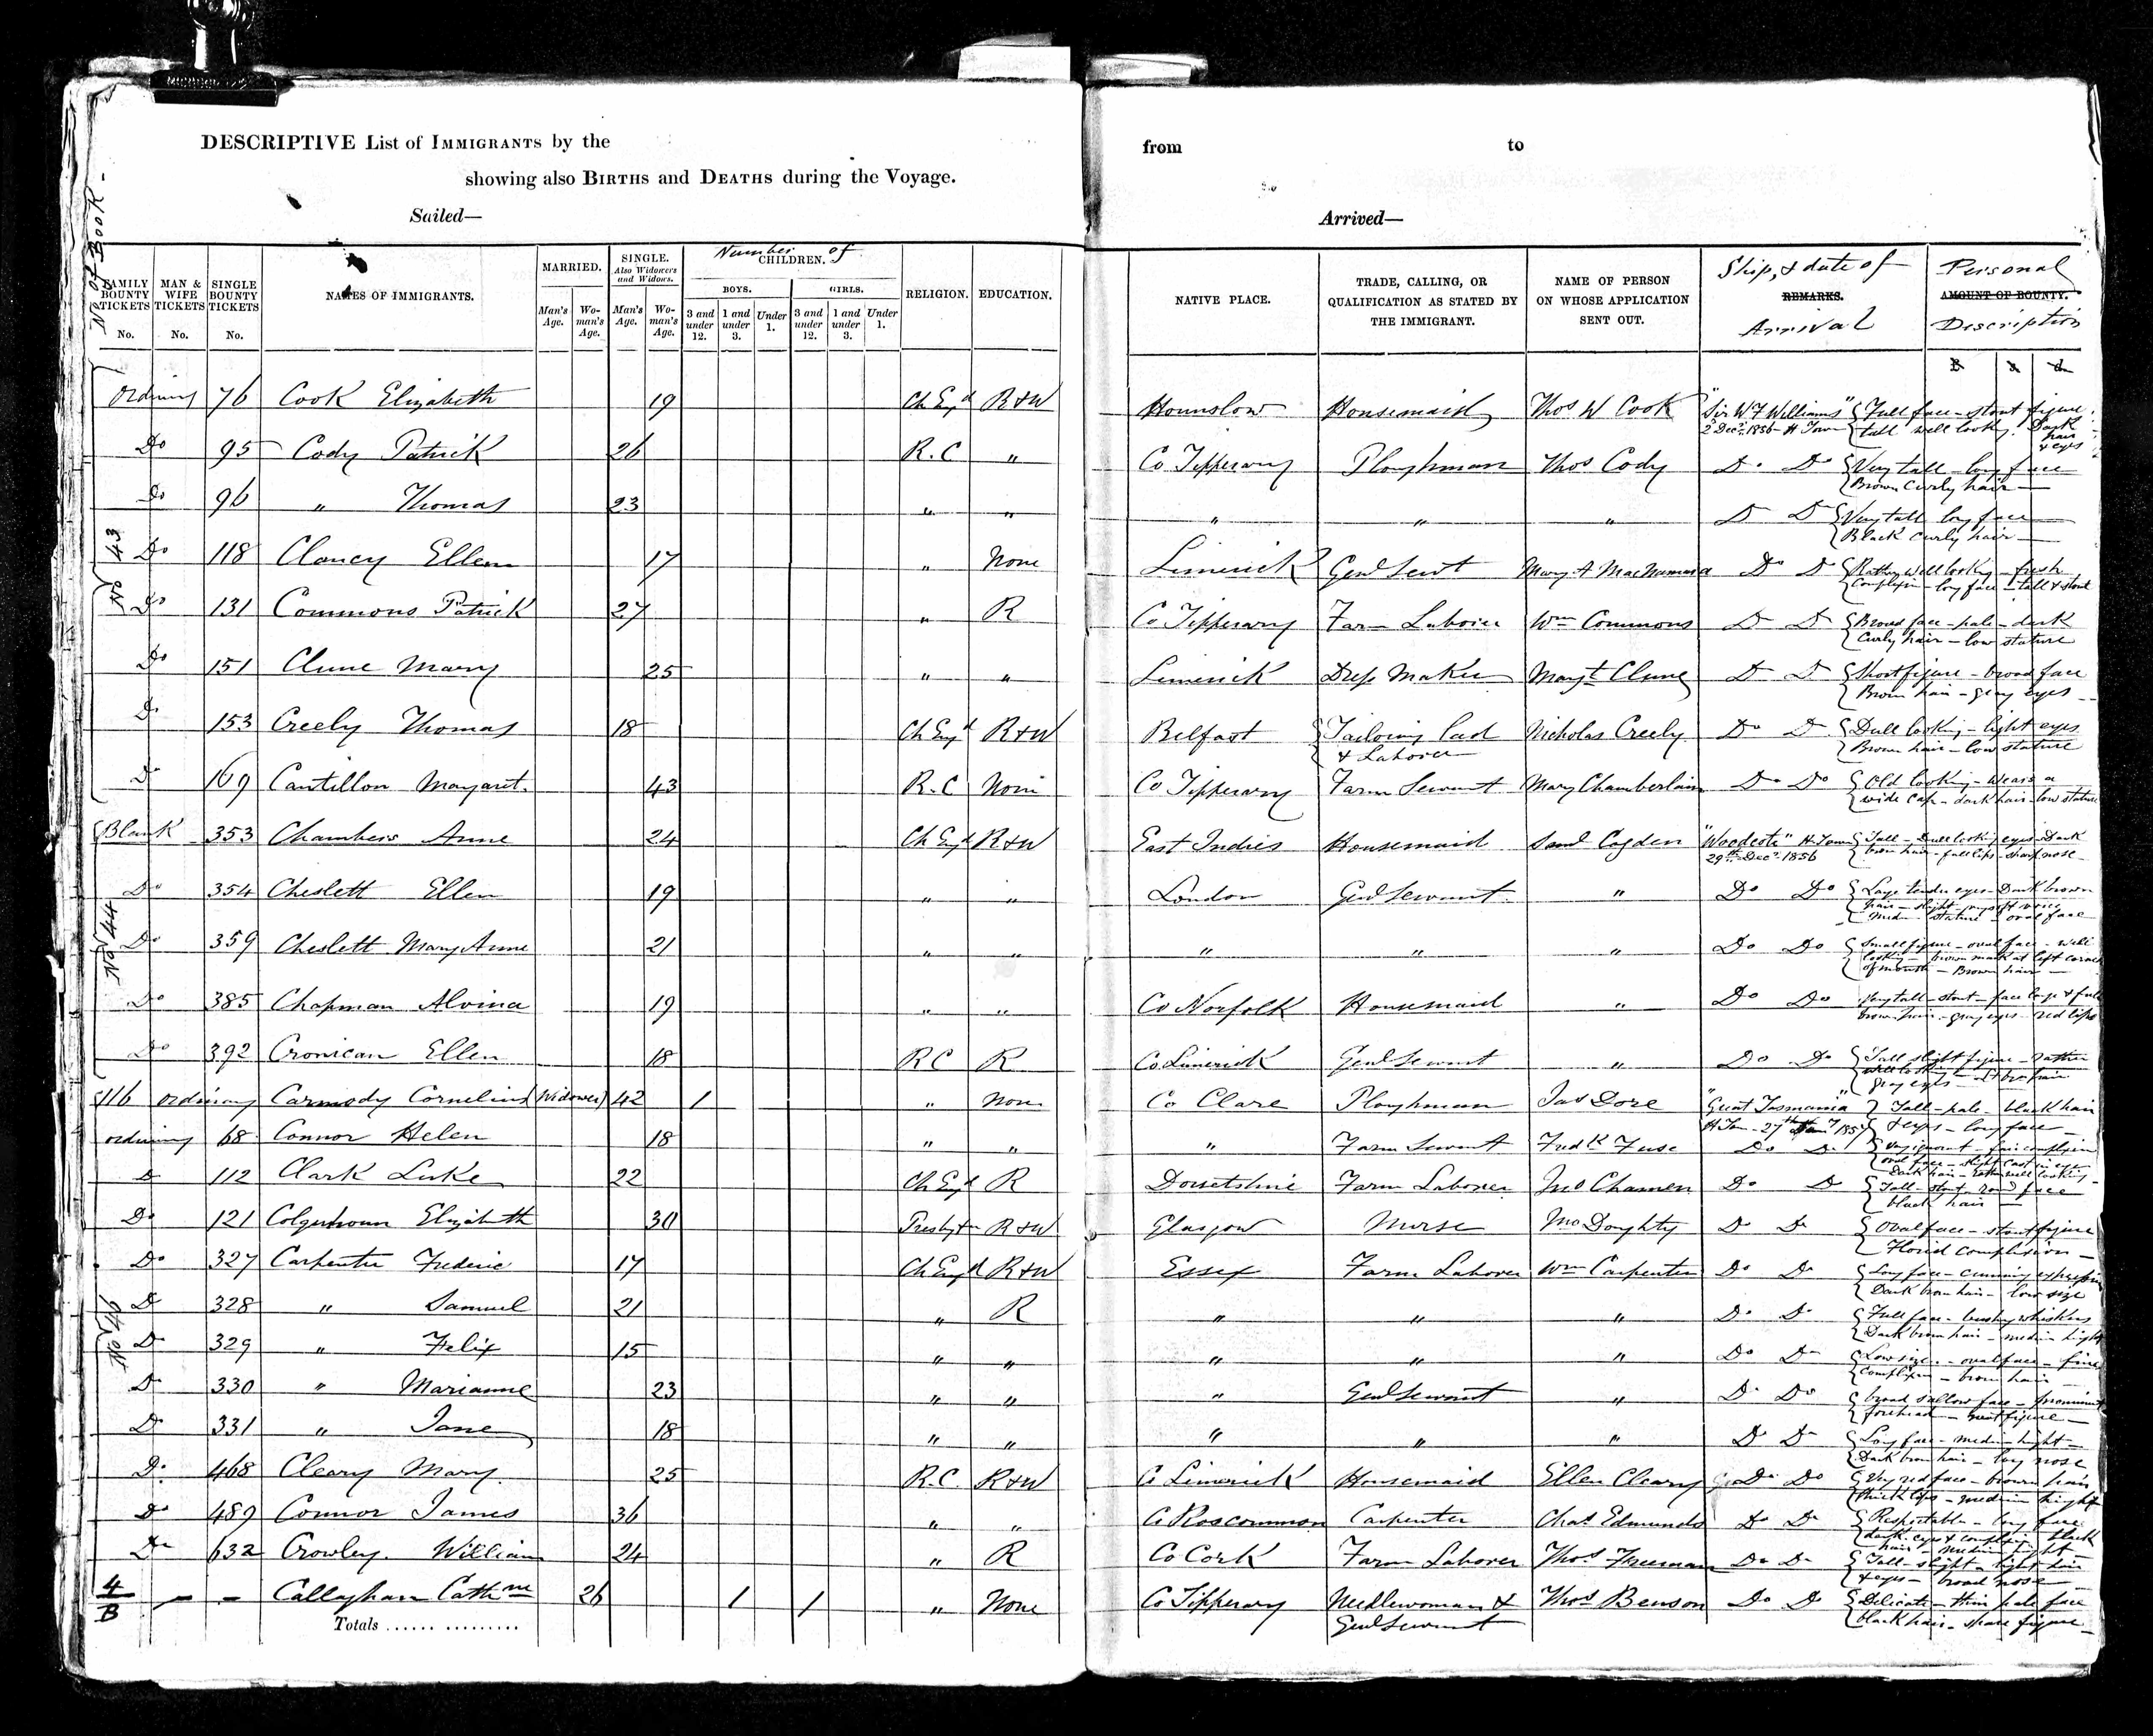 DESCRIPTIVE List of IMMIGRANTS by the
showing also BIRTHS and DEATHS during the Voyage.
Sailed—
from to
Arrived—
No of Book -
FAMILY BOUNTY TICKETS No. MAN & WIFE TICKETS No. SINGLE BOUNTY TICKETS No. NAMES OF IMMIGRANTS. MARRIED. Man's Age. Woman's Age. SINGLE. Also Widowers and Widows. Man's Age. Woman's Age. Number of CHILDREN. BOYS. 3 and under 12. 1 and under 3. Under 1. GIRLS. 3 and under 12. 1 and under 3. Under 1. RELIGION. EDUCATION.
NATIVE PLACE. TRADE, CALLING, OR QUALIFICATION AS STATED BY THE IMMIGRANT. NAME OF PERSON ON WHOSE APPLICATION SENT OUT. Ship, & date of REMARKS. Arrival Personal AMOUNT OF BOUNTY. Description
No 43
Ordinary 76 Cook Elizabeth 19 Ch Engd R+W Hounslow Housemaid Thos W Cook "Sir W F Williams" 2 Decr 1856 H Town Full face - stout figure tall well looking. Dark hair & eyes
Do 95 Cody Patrick 26 R.C " Co Tipperary Ploughman Thos Cody Do Do Very tall - long face Brown Curly hair
Do 96 " Thomas 23 " " " " " Do Do Very tall long face Black Curly hair
Do 118 Clancy Ellen 17 " None Limerick Genl Servt Mary A MacNamara Do Do Rather Well looking - fresh Complexion - long face - tall & stout
Do 131 Commons Patrick 27 " R Co Tipperary Farm Laborer Wm Commons Do Do Broad face - pale - dark Curly hair - low stature
Do 151 Clune Mary 25 " " Limerick Dress Maker Margt Clune Do Do Short figure - broad face Brown hair - gray eyes
Do 153 Creely Thomas 18 Ch Engd R+W Belfast Tailoring lad & Laborer Nicholas Creely Do Do Dull looking - light eyes Brown hair - low stature
Do 169 Cantillon Margaret 43 R.C None Co Tipperary Farm Servant Mary Chamberlain Do Do Old looking - wears a wide Cap - dark hair - low stature
No 44
Blank 353 Chambers Anne 24 Ch Engd R+W East Indies Housemaid Saml Cogden "Woodcote" H. Town 29th Decr 1856 Tall - Dull looking eyes - Dark brown hair - full lips - sharp nose
Do 354 Cheslett Ellen 19 " " London Genl Servant " Do Do Large tender eyes - Dark brown hair - slight stature - oval face
Do 359 Cheslett Mary Anne 21 " " " " " Do Do Small figure - oval face - well looking - brown mark at left corner of mouth - Brown hair
Do 385 Chapman Alvina 19 " " Co Norfolk Housemaid " Do Do Very tall - stout - face large & full brown hair - gray eyes - red lips
Do 392 Cronican Ellen 18 RC R Co Limerick Genl Servant " Do Do Tall slight figure - rather well looking gray eyes
No 46
116 Ordinary Carmody Cornelius (Widower) 42 1 " None Co Clare Ploughman Jas Dore "Great Tasmania" H Town - 27th 1857 Tall - pale - black hair & eyes - long face
Ordinary 68 Connor Helen 18 " " " Farm Servant Fredk Fuse Do Do Very ignorant - fair complexion oval face - slight cast in eye
Do 112 Clark Luke 22 Ch Engd R Dorsetshire Farm Laborer Jno Chamen Do Do Dark hair - Rather well looking Tall - stout - round face black hair
Do 121 Colquhoun Elizabeth 30 Presbytn R+W Glasgow Nurse Jno Doughty Do Do Oval face - stout figure Florid Complexion
Do 327 Carpenter Frederic 17 Ch Engd R+W Essex Farm Laborer Wm Carpenter Do Do Long face - cunning expression Dark brown hair - low size
Do 328 " Samuel 21 " R " " " Do Do Full face - bushy whiskers Dark brown hair - medium hight
Do 329 " Felix 15 " " " " " Do Do Low size - oval face - fine Complexion - brown hair
Do 330 " Marianne 23 " " " Genl Servant " Do Do broad sallow face - prominent forehead - figure
Do 331 " Jane 18 " " " " " Do Do Long face - medium hight - Dark brown hair - long nose
Do 468 Cleary Mary 25 R.C. R+W Co Limerick Housemaid Ellen Cleary Do Do Very red face - brown hair thick lips - medium hight
Do 489 Connor James 36 " " Co Roscommon Carpenter Chas Edmunds Do Do Respectable - long face dark eyes & complexion black hair - medium hight
Do 632 Crowley William 24 " R Co Cork Farm Laborer Thos Freeman Do Do Tall - slight - light hair & eyes - broad nose
4/B - - Callaghan Cathne 26 1 1 " None Co Tipperary Needlewoman & Genl Servant Thos Benson Do Do Delicate - thin pale face black hair - spare figure
Totals